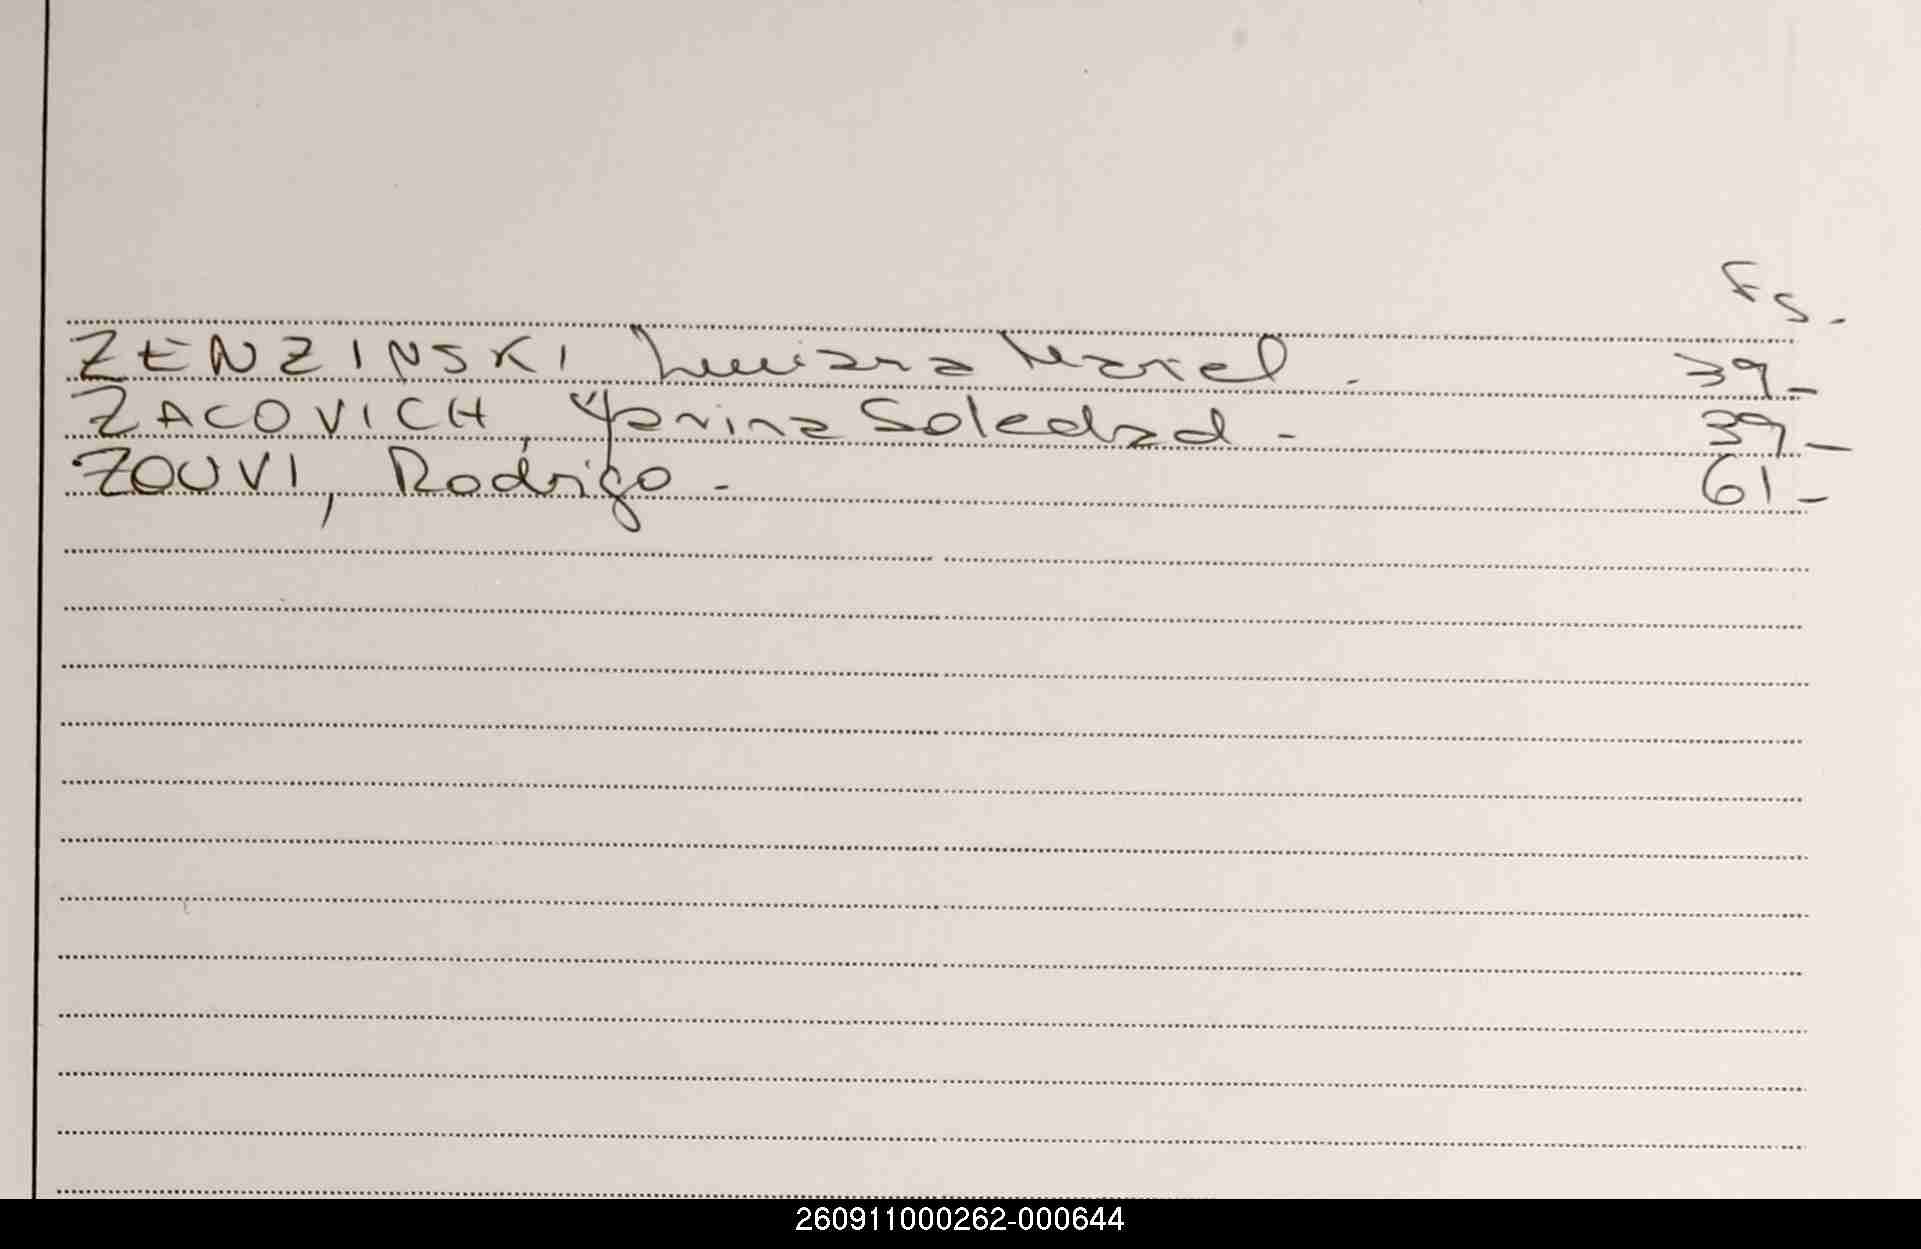 Fs.
ZENZINSKI Luciana Mariel. 39-
ZACOVICH, Yanina Soledad - 39-
ZOUVI, Rodrigo - 61-
260911000262-000644